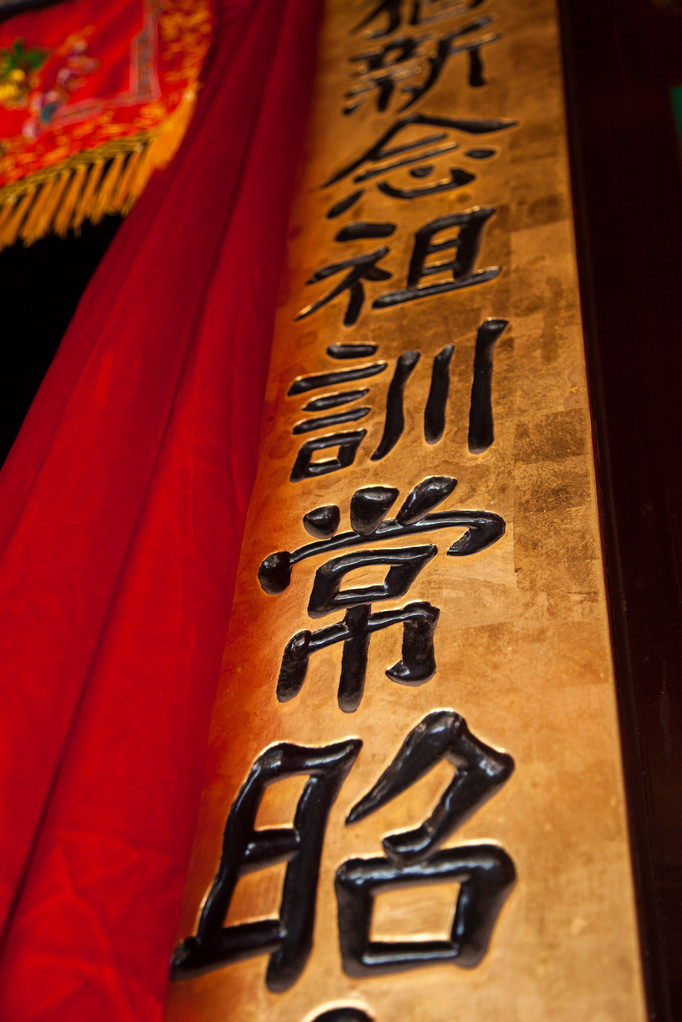 新念祖訓常昭